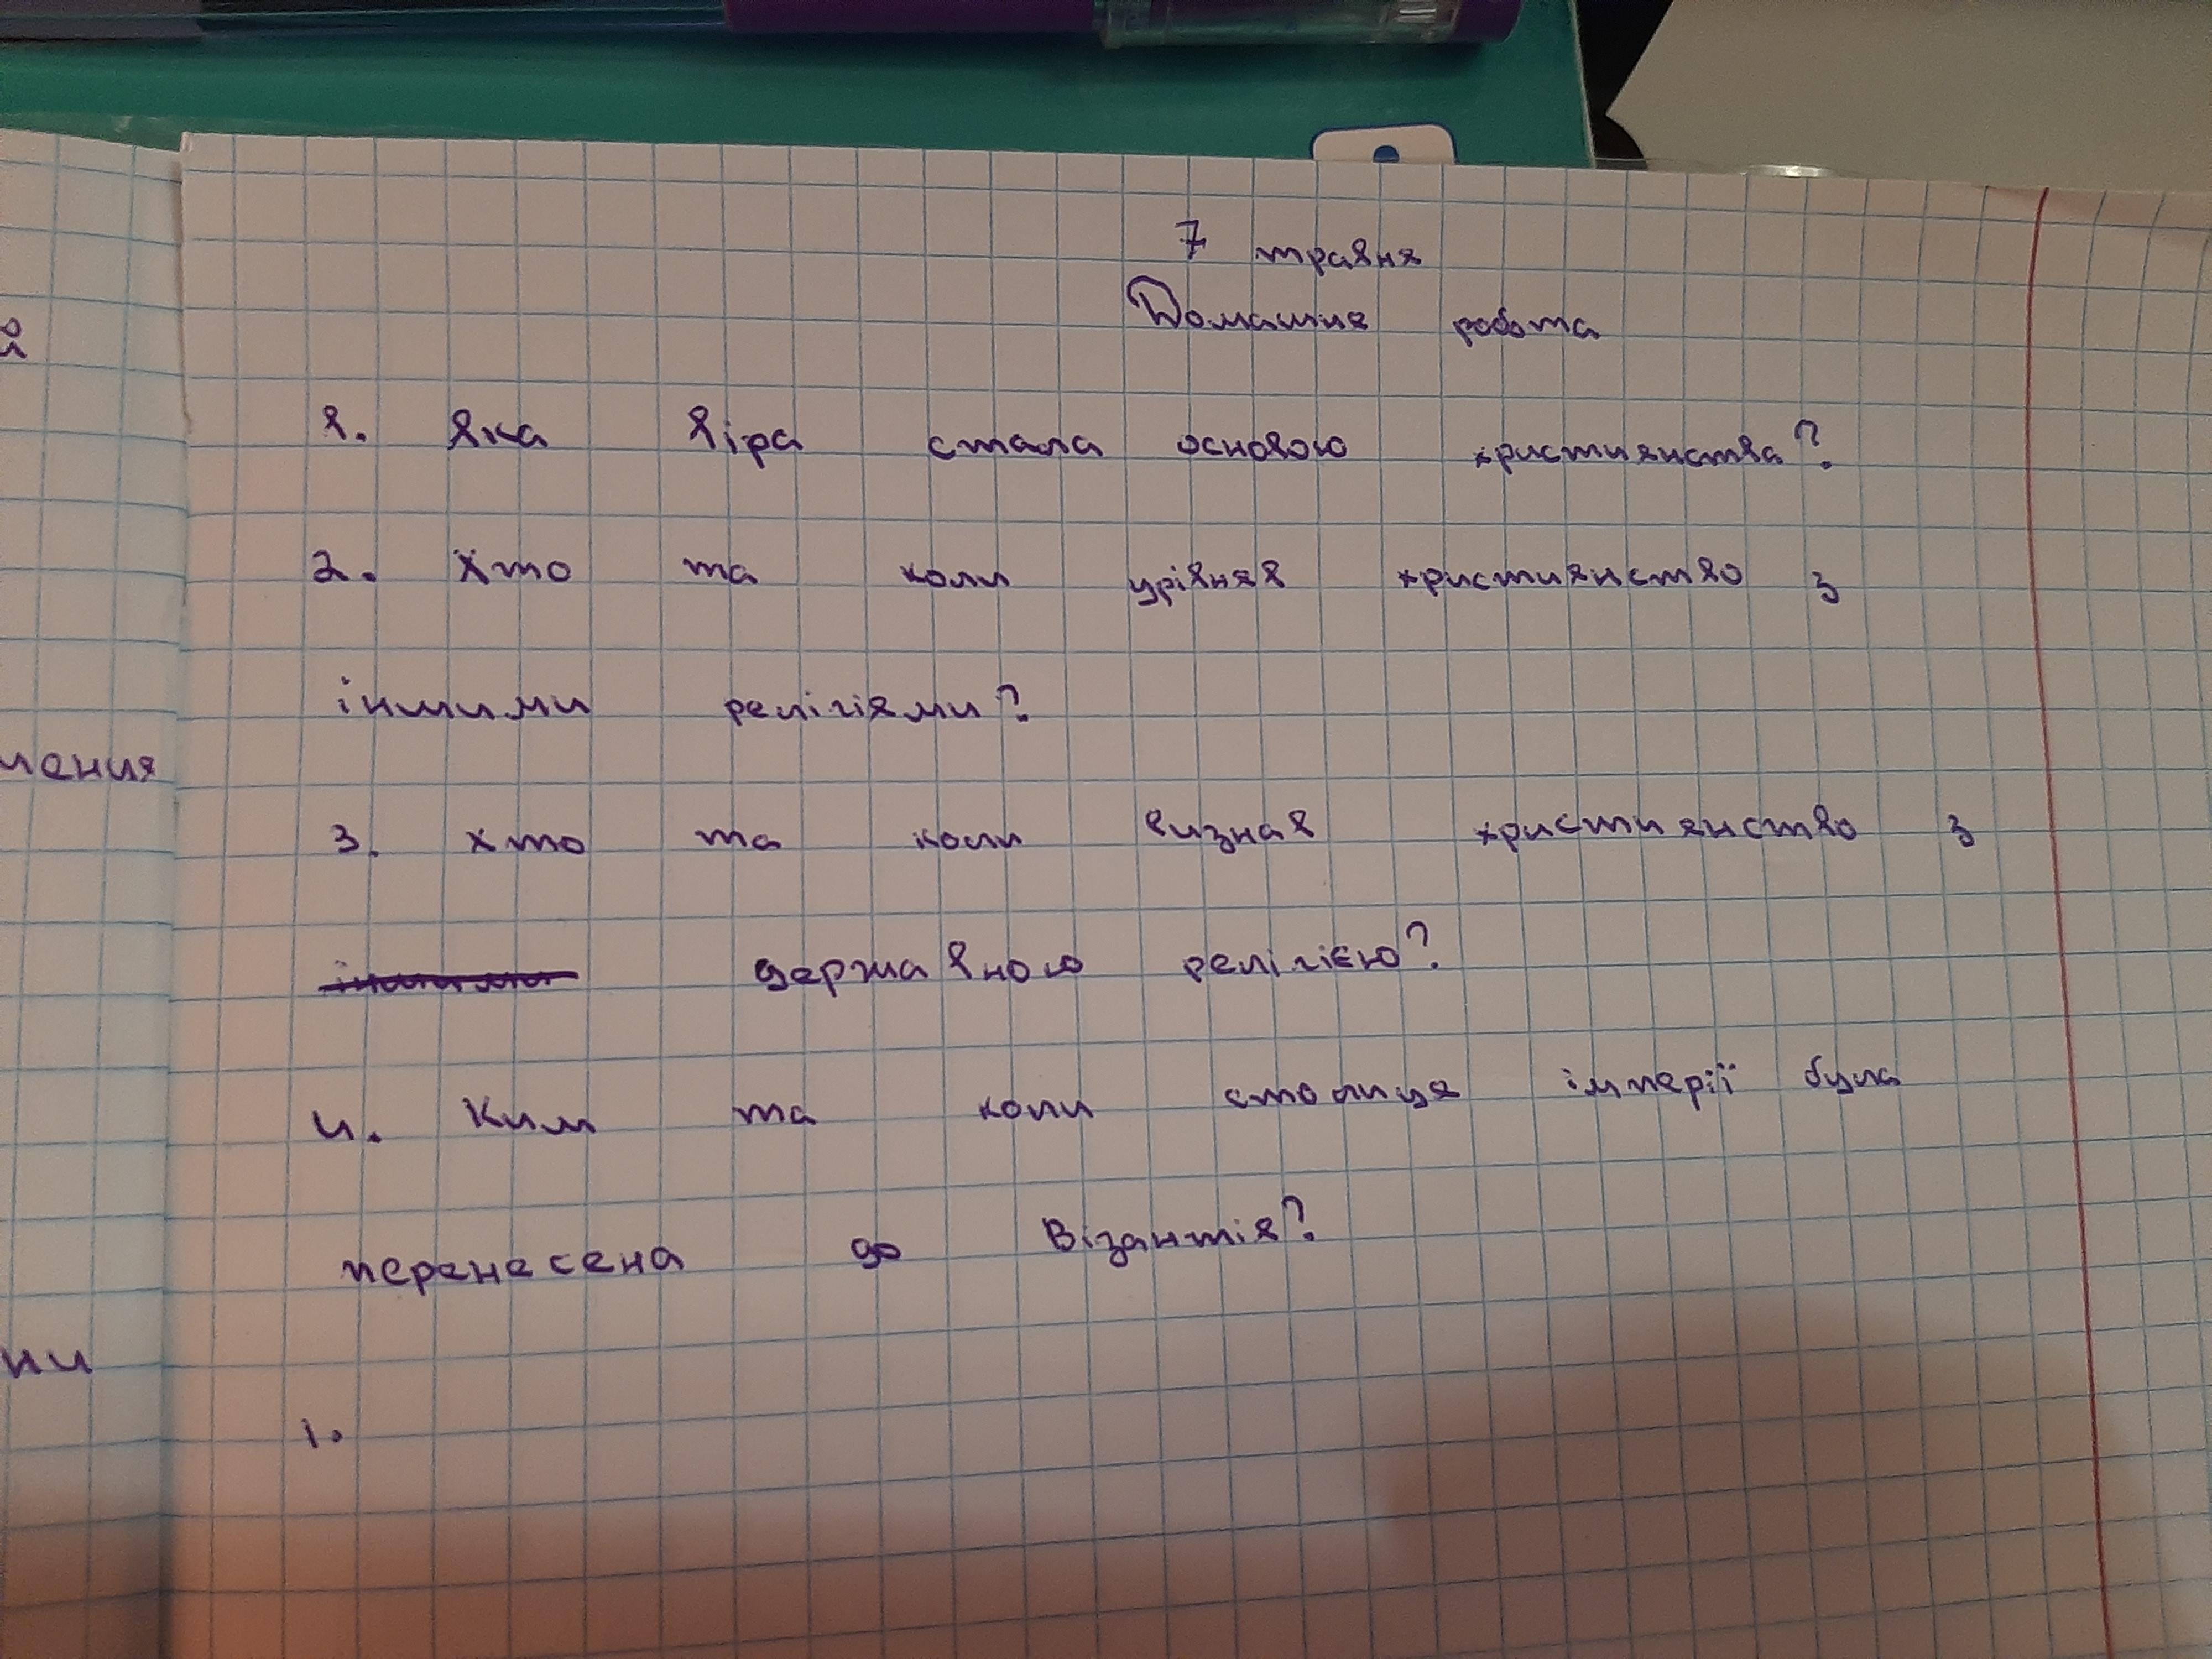 7 травня
Домашня робота
1. Яка віра стала основою християнства?
2. Хто та коли урівняв християнство з
іншими релігіями?
3. хто та коли визнав християнство з
державною релігією?
4. Ким та коли столиця імперії була
перенесена до Візантія?
1.
й
ня
ни